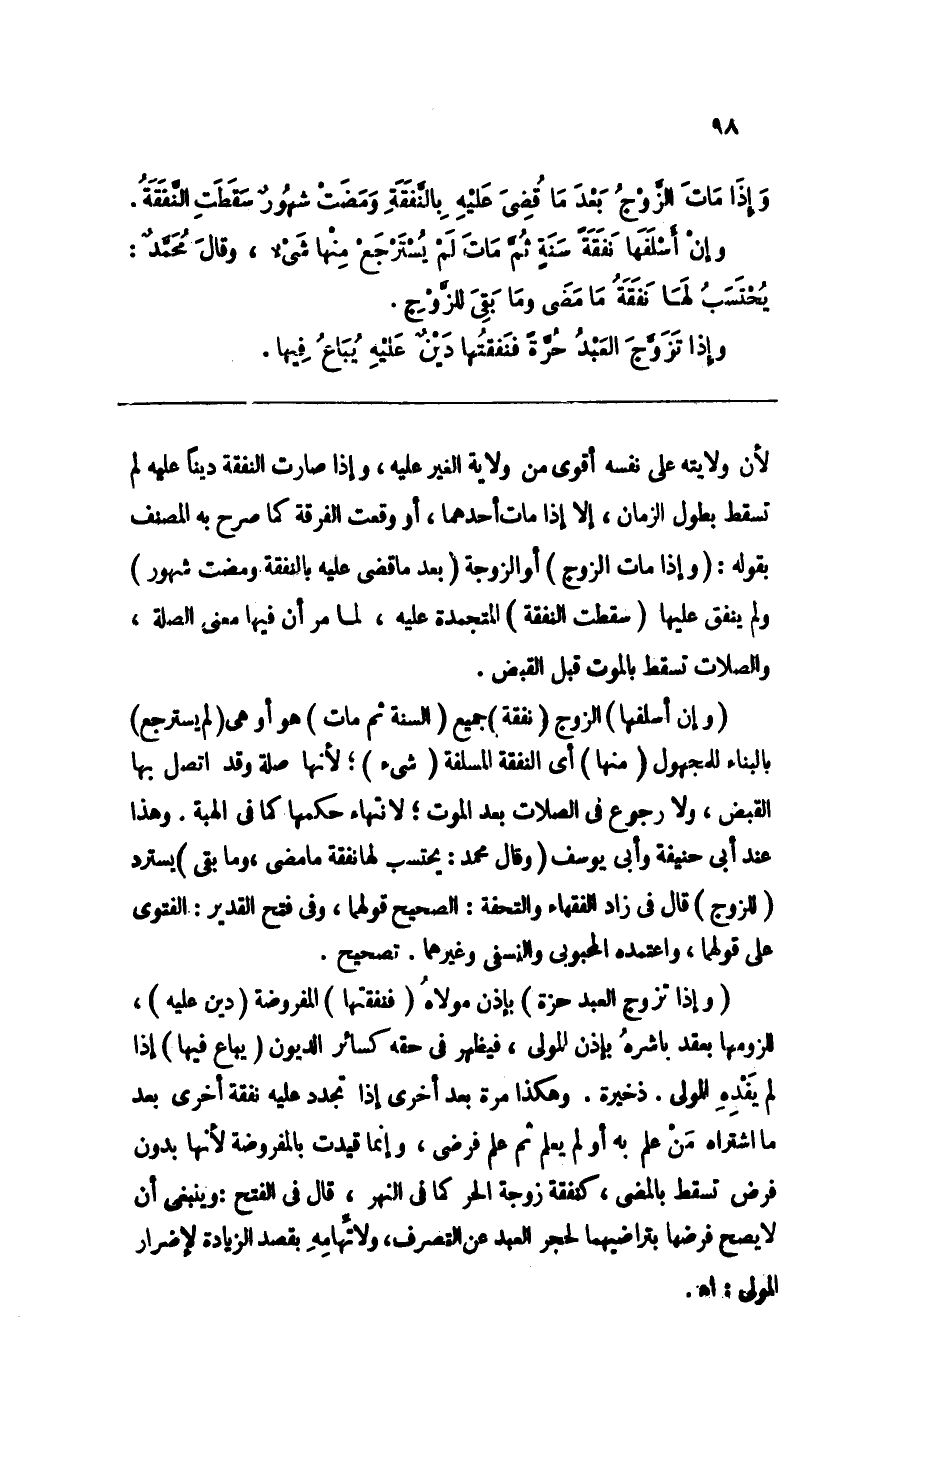 ٩٨
وَإِذَا مَاتَ الزَّوْجُ بَعْدَ مَا قُضِىَ عَلَيْهِ بِالنَّفَقَةِ وَمَضَتْ شهُورٌ سَقَطَتِ النَّفَقَةُ .
وإنْ أَسْلَفَها نَفَقَةَ سَنَةٍ ثُمَّ مَاتَ لَمْ يُسْتَرْجَعْ مِنْها شَىْءٌ ، وقالَ مُحَمَّدٌ :
يُحْتَسَبُ لَهَا نَفَقَةُ مَا مَضَى ومَا بَقِىَ لِلزَّوْجِ .
وإذا تَزَوَّجَ العَبْدُ حُرَّةً فنَفقتُها دَيْنٌ عَلَيْهِ يُبَاعُ فِيها .
لأن ولايته على نفسه أقوى من ولاية الغير عليه ، وإذا صارت النفقة ديناً عليه لم
تسقط بطول الزمان ، إلا إذا مات أحدهما ، أو وقعت الفرقة كما صرح به المصنف
بقوله : ( وإذا مات الزوج ) أو الزوجة ( بعد ماقضى عليه بالنفقة ومضت شهور )
ولم ينفق عليها ( سقطت النفقة ) المتجمدة عليه ، لما مر أن فيها معنى الصلة ،
والصلات تسقط بالموت قبل القبض .
( وإن أسلفها ) الزوج ( نفقة ) جميع ( السنة ثم مات ) هو أو هى ( لم يسترجع )
بالبناء للمجهول ( منها ) أى النفقة المسلفة ( شىء ) ؛ لأنها صلة وقد اتصل بها
القبض ، ولا رجوع فى الصلات بعد الموت ؛ لانتهاء حكمها كما فى الهبة . وهذا
عند أبى حنيفة وأبى يوسف ( وقال محمد : يحتسب لها نفقة مامضى ، وما بقى ) يسترد
( للزوج ) قال فى زاد الفقهاء والتحفة : الصحيح قولهما ، وفى فتح القدير : الفتوى
على قولهما ، واعتمده المحبوبى والنسفى وغيرهما . تصحيح .
( وإذا تزوج العبد حرة ) بإذن مولاهُ ( فنفقتها ) المفروضة ( دين عليه ) ،
للزومها بعقد باشرهُ بإذن المولى ، فيظهر فى حقه كسائر الديون ( يباع فيها ) إذا
لم يَفْدِهِ المولى . ذخيرة . وهكذا مرة بعد أخرى إذا تجدد عليه نفقة أخرى بعد
ما اشتراه مَنْ علم به أو لم يعلم ثم علم فرضى ، وإنما قيدت بالمفروضة لأنها بدون
فرض تسقط بالمضى ، كنفقة زوجة الحر كما فى النهر ، قال فى الفتح : وينبغى أن
لا يصح فرضها بتراضيهما لحجر العبد عن التصرف ، ولاتِّهامِهِ بقصد الزيادة لإضرار
المولى : اه .